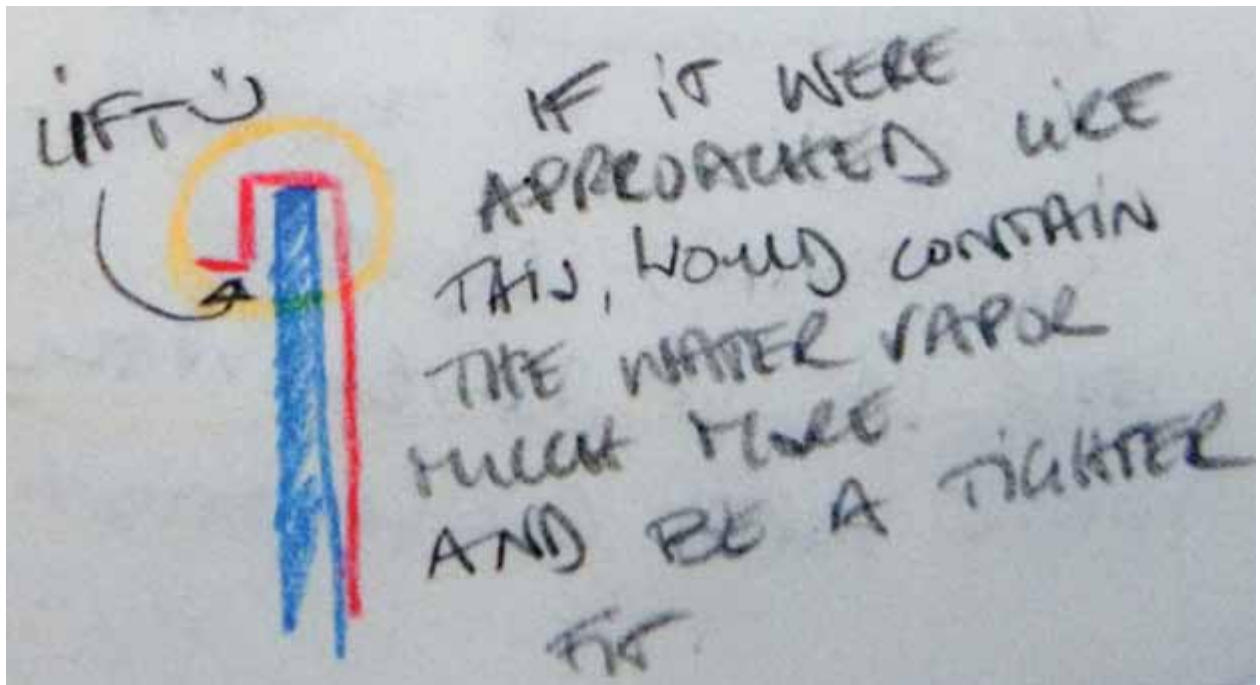 LIFT
IF IT WERE
APPROACHED LIKE
THIS, WOULD CONTAIN
THE WATER VAPOR
MUCH MORE.
AND BE A TIGHTER
FIT.